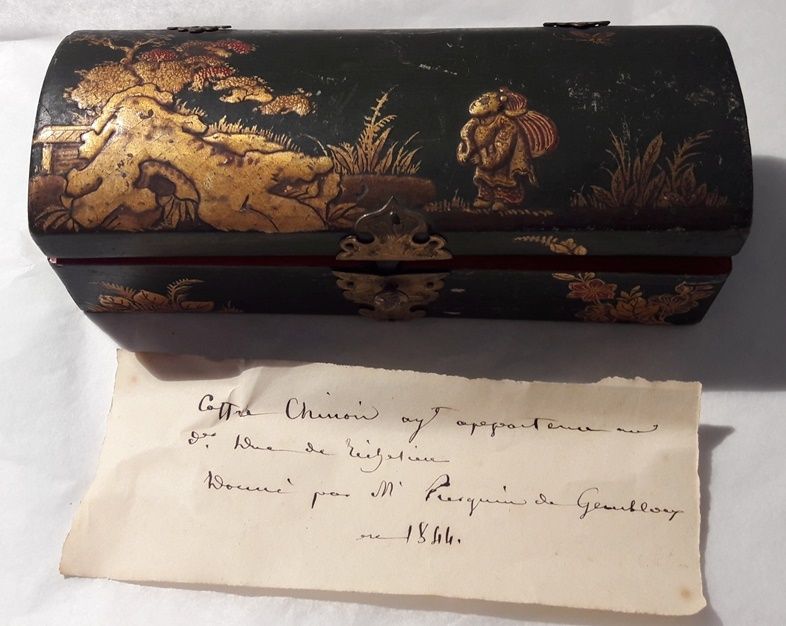 Coffre Chinois ayt appartenu au
der Duc de Richelieu
Donné par Mr Pierquin de Gembloux
en 1844.